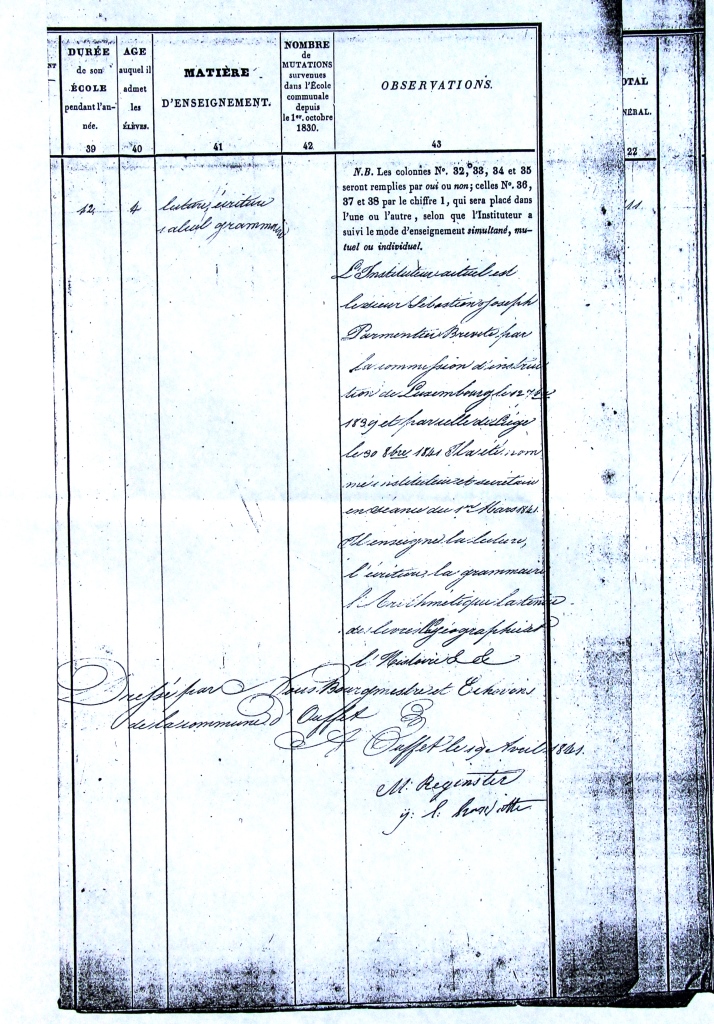 NT
DURÉE
de son
ÉCOLE
pendant l'an-
née.
39
AGE
auquel il
admet
les
ÉLÈVES.
40
MATIÈRE
D'ENSEIGNEMENT.
41
NOMBRE
de
MUTATIONS
survenues
dans l'École
communale
depuis
le 1er. octobre
1830.
42
OBSERVATIONS.
43
OTAL
NÉRAL.
22
N.B. Les colonnes No. 32, 33, 34 et 35
seront remplies par oui ou non; celles No. 36,
37 et 38 par le chiffre 1, qui sera placé dans
l'une ou l'autre, selon que l'Instituteur a
suivi le mode d'enseignement simultané, mu-
tuel ou individuel.
12
4
lecture, écriture
calcul grammaire
11
L'Instituteur actuel est
le sieur Sébastien Joseph
Parmentier Breveté par
la commission d'instruc
tion de Luxembourg le 12 7bre
1839 et par celle de Liége
le 30 8bre 1841 Il a été nom
mé instituteur et secrétaire
en séance du 1er Mars 1841.
Il enseigne la lecture,
l'écriture, la grammaire
l'Arithmétique la tenue
des livres la géographie et
l'Histoire & &
Dressé par Nous Bourgmestre et Echevins
de la commune d'Ouffet
A Ouffet le 19 Avril 1841.
M. Reginster